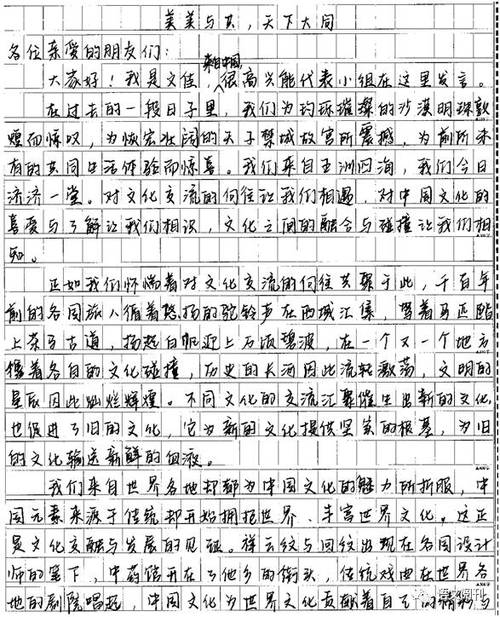 美美与共，天下大同
各位亲爱的朋友们：
来自中国，
大家好！我是文佳，很高兴能代表小组在这里发言。
在过去的一段日子里，我们为玓琭璀璨的沙漠明珠敦
煌而惊叹，为恢宏壮阔的天子禁城故宫所震撼，为前所未
有的共同生活体验而惊喜。我们来自五洲四海，我们今日
济济一堂。对文化交流的向往让我们相遇，对中国文化的
喜爱与了解让我们相识，文化之间的融合与碰撞让我们相
知。
正如我们怀揣着对文化交流的向往共聚于此，千百年
前的各国旅人循着悠扬的驼铃声在西域汇集，驾着马匹踏
上茶马古道，扬起白帆迎上万顷碧波，在一个又一个地方
携着各自的文化碰撞，历史的长河因此流转激荡，文明的
星辰因此灿烂辉煌。不同文化的交流汇聚催生出新的文化，
也促进了旧的文化，它为新的文化提供坚实的根基，为旧
的文化输送新鲜的血液。
我们来自世界各地却都为中国文化的魅力所折服，中
国元素来源于传统却开始拥抱世界、丰富世界文化。这正
是文化交融与发展的见证。祥云纹与回纹出现在各国设计
师的笔下，中药馆开在了他乡的街头，传统戏曲在世界各
地的剧院唱起，中国文化为世界文化贡献着自己的精彩与
语文周刊